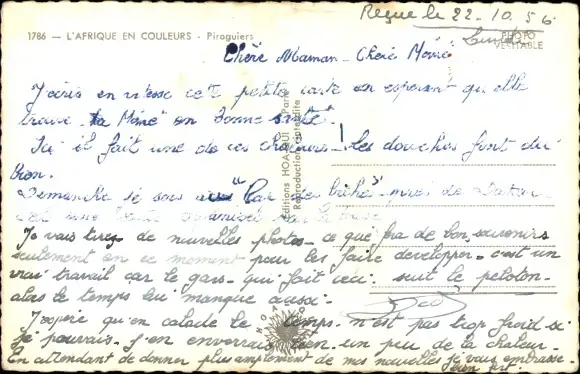 Reçue le 22.10.56
Lundi
1786 — L'AFRIQUE EN COULEURS - Piroguiers
PHOTO VÉRITABLE
Chère Maman - Chère Mémé
J'écris en vitesse cette petite carte en espérant qu'elle
trouve la Mémé en bonne santé.
Ici il fait une de ces chaleurs! Les douches font du
bien.
Dimanche je suis près de
c'est une
Je vais tirer de nouvelles photos - ce qui fera de bons souvenirs
seulement en ce moment pour les faire développer - c'est un
vrai travail car le gars - qui fait ceci - suit le peloton -
alors le temps lui manque aussi.
J'espère qu'en le temps n'est pas trop froid - si
je pouvais - j'en enverrais bien un peu de la chaleur.
En attendant de donner plus amplement de mes nouvelles je vous embrasse
bien fort.
Editions HOA-QUI Paris
Reproduction interdite
HOA-QUI